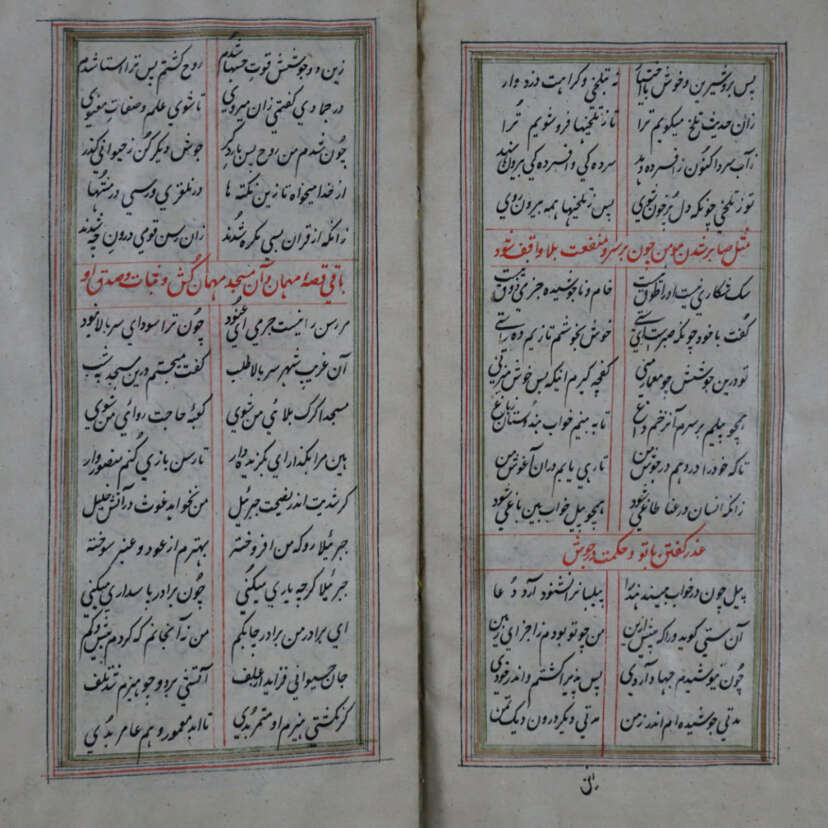 پس برو شیرین و خوش با اختیار نه بتلخی و کراهت دزد وار
زان حدیث تلخ میکویم ترا تا ز تلخیها فروشویم ترا
زآب سرد اکنون ز افسرده رهد سرده کی و افسرده کی بیرون نهد
تو ز تلخی چونکه دل پرخون شوی پس ز تلخیها همه بیرون روی
مثل صابر شدن مومن چون بر سر و منفعت بلا واقف شود
سک شکاری نیست او را طوق نیست خام و ناجوشیده جز بی ذوق نیست
گفت با خود چونکه ای ستی خوش بجوشم یاریم ده راستی
تو درین جوشش چو معمار منی کفچه بس خوش میزنی
همچو پیلم بر سرم زن زخم و داغ تا نه بینم خواب هندستان و باغ
تا که خود را در دهم در جوش من تا رهی یابم در آن آغوش من
زانکه انسان در غنا طاغی شود همچو پیل خواب بین باغی شود
عذر گفتن بانو و حکمت در جوش
پیل چون در خواب بیند هند را پیلبانرا نشنود آرد دغا
آن ستی کوید ورا که پیش ازین من چو تو بودم ز اجزای زمین
چون بنوشیدم جهاد آذری پس پذیرا کشتم و اندر خوری
مدتی جوشیده ام اندر زمن مدتی دیکر درون دیک تن
زین
زین دو جوشش قوت حسها شدم روح کشتم پس ترا استا شدم
در جمادی کفتمی زان میروی تا شوی علم و صفات معنوی
چون شدم من روح پس بار دکر جوش دیکر کن ز حیوانی کذر
از خدا میخواه تا زین نکته ها در نلغزی و رسی در منتها
زانکه از قران بسی کمره شدند زان رسن قومی درون چه شدند
باقی قصهٔ مهمان و آن مسجد مهمان کش و ثبات و صدق او
مر رسن را نیست جرمی ای عنود چون ترا سودای سر بالا نبود
آن غریب شهر سر بالا طلب کفت میخسپم درین مسجد بشب
مسجدا کر کربلای من شوی کعبهٔ حاجت روای من شوی
هین مرا بکذار ای بکزیده دار تا رسن بازی کنم منصور وار
کر شدیت اندر نصیحت جبرئیل من نخواهد غوث در آتش خلیل
جبرئیلا رو که من افروخته بهترم از عود و عنبر سوخته
جبرئیلا کرچه یاری میکنی چون برادر پاسداری میکنی
ای برادر من بر آذر چابکم من نه آنجانم که کردم بیش و کم
جان حیوانی فزاید از علف آتشی بود و چو هیزم شد تلف
کر نکشتی هیزم او مثمر بدی تا ابد معمور و هم عامر بدی